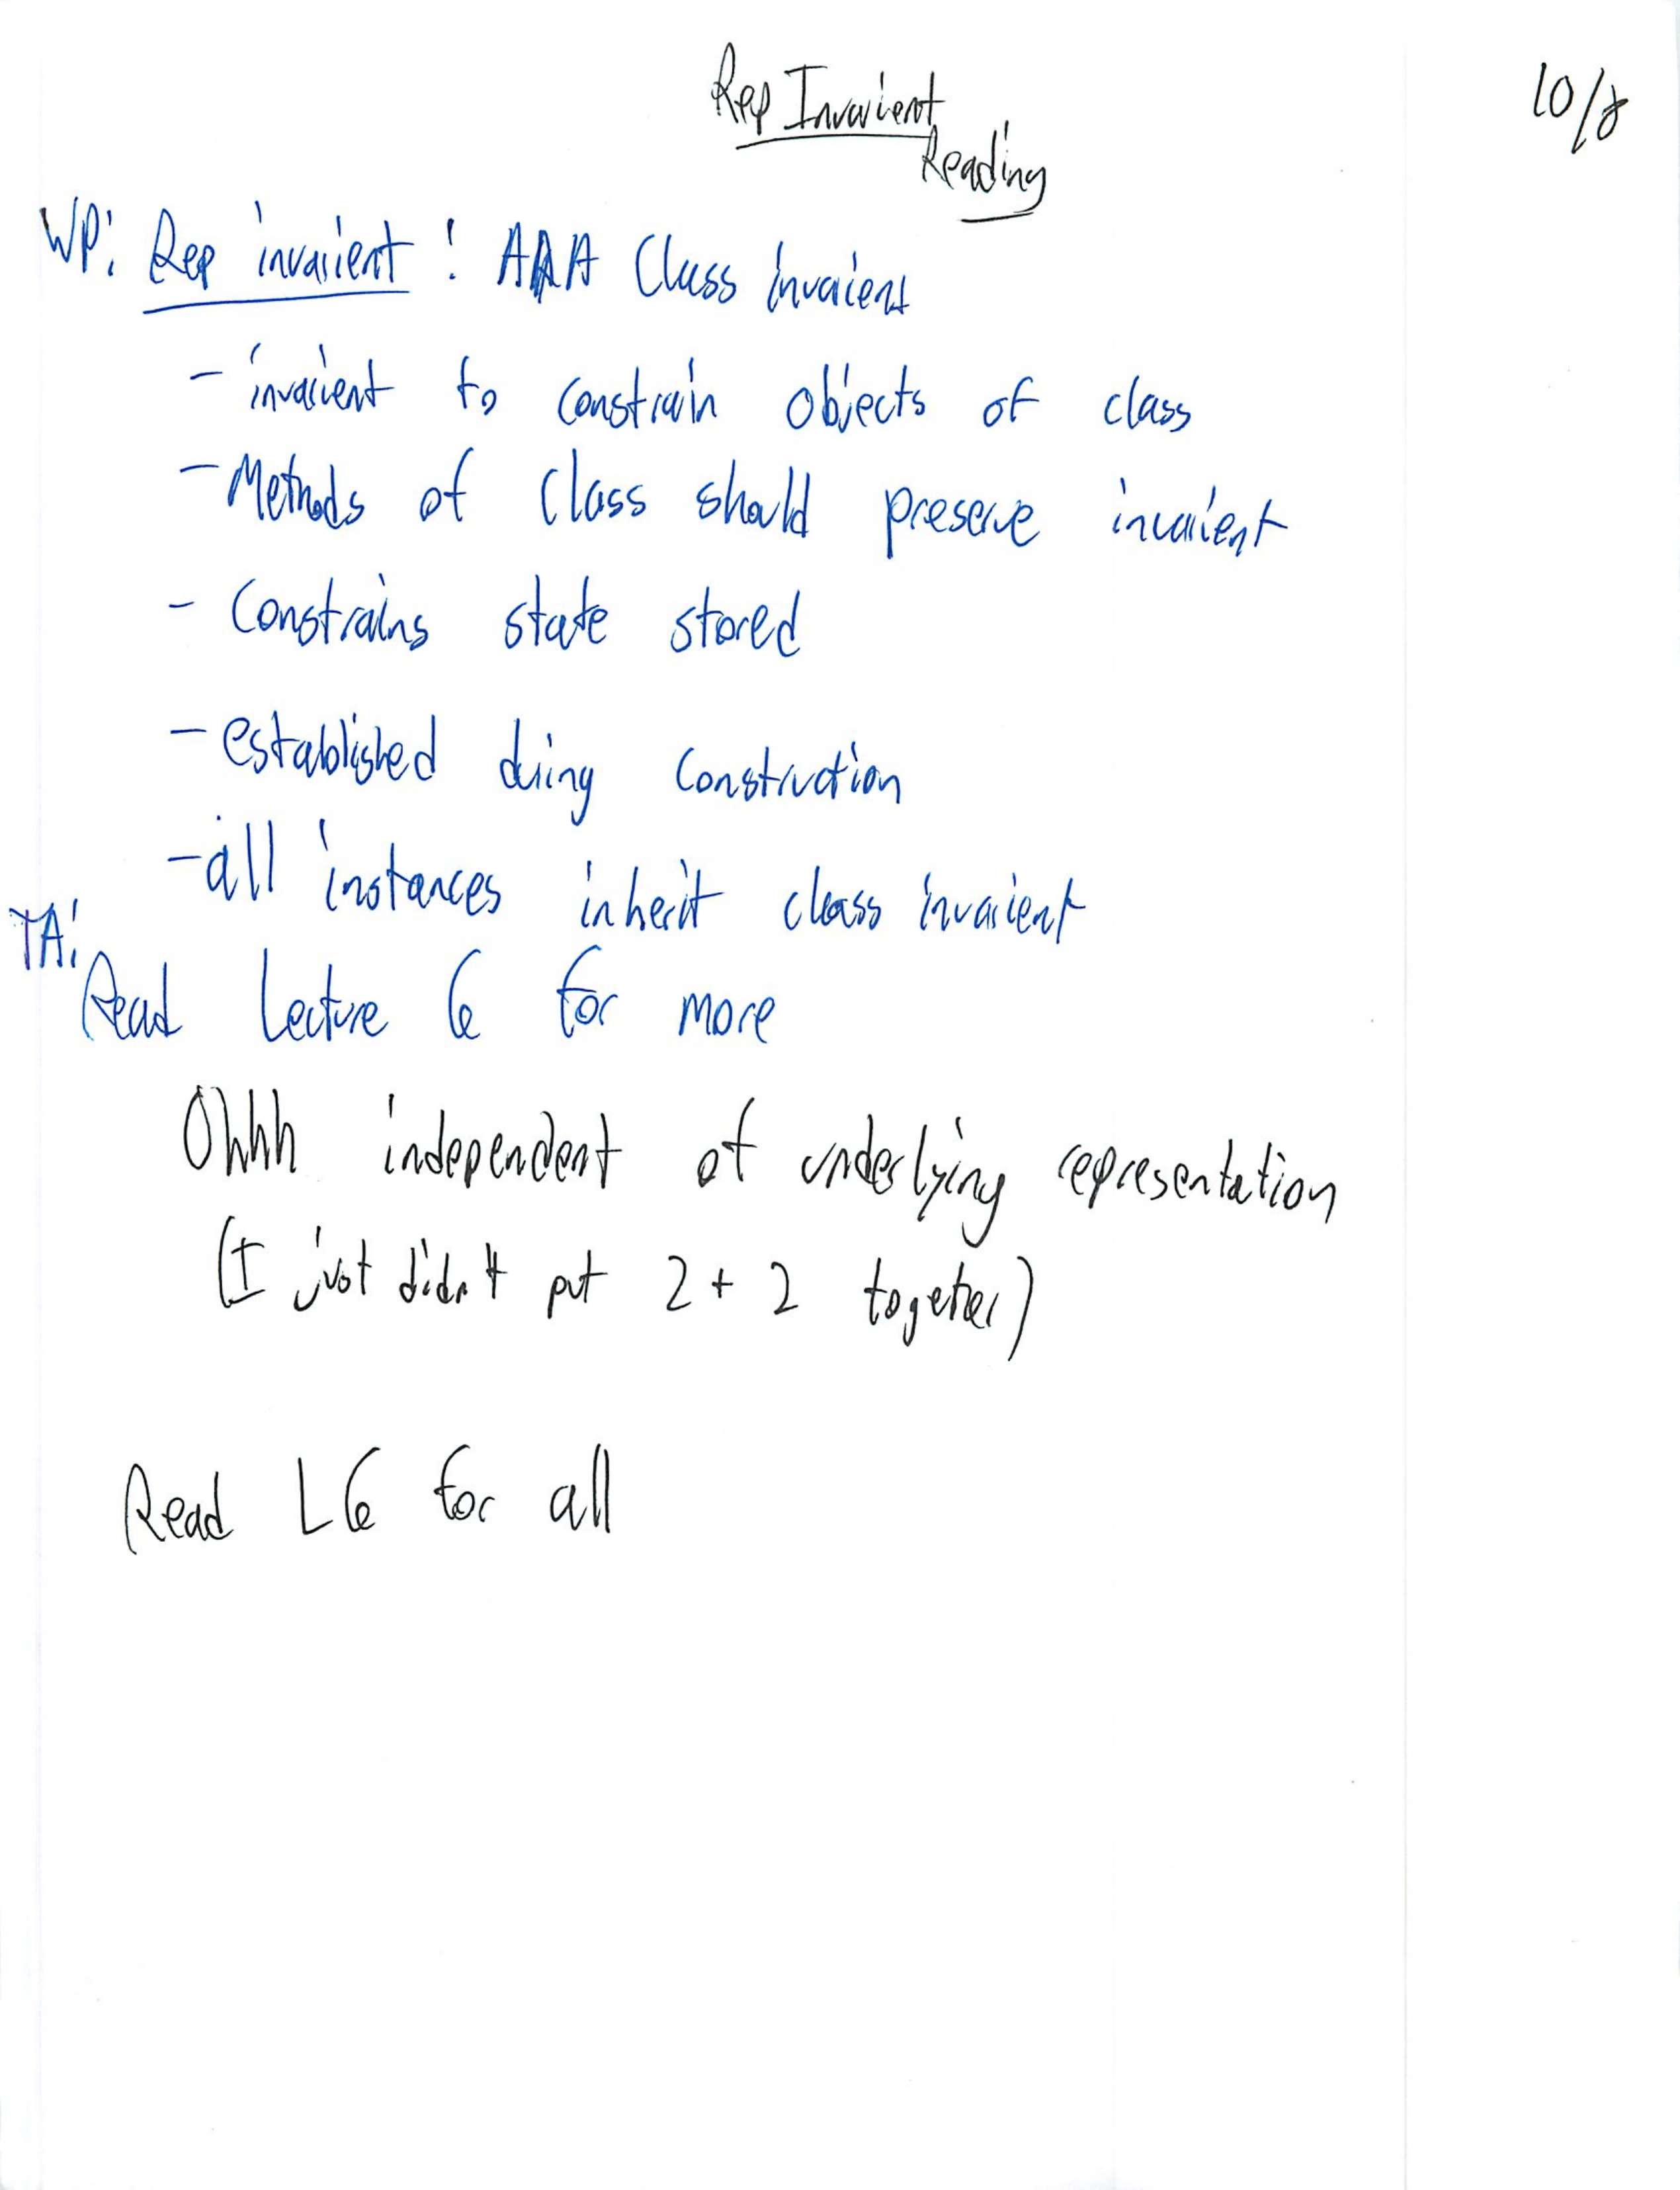 Rep Invarient
Reading
10/8
WP: Rep invarient: AKA Class invarient
- invarient to constrain objects of class
- Methods of class should preserve invarient
- Constrains state stored
- established during construction
- all instances inherit class invarient
TA:
Read Lecture 6 for more
Ohhh independent of underlying representation
(I just didn't put 2 + 2 together)
Read L6 for all